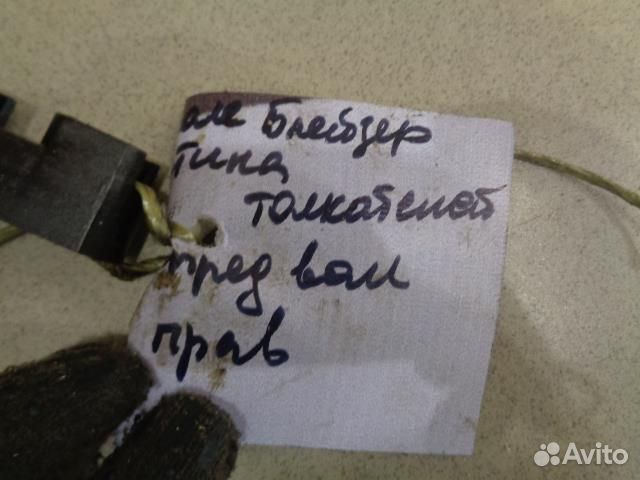 але Блейзер
тина
толкателей
пред вал
прав
Avito